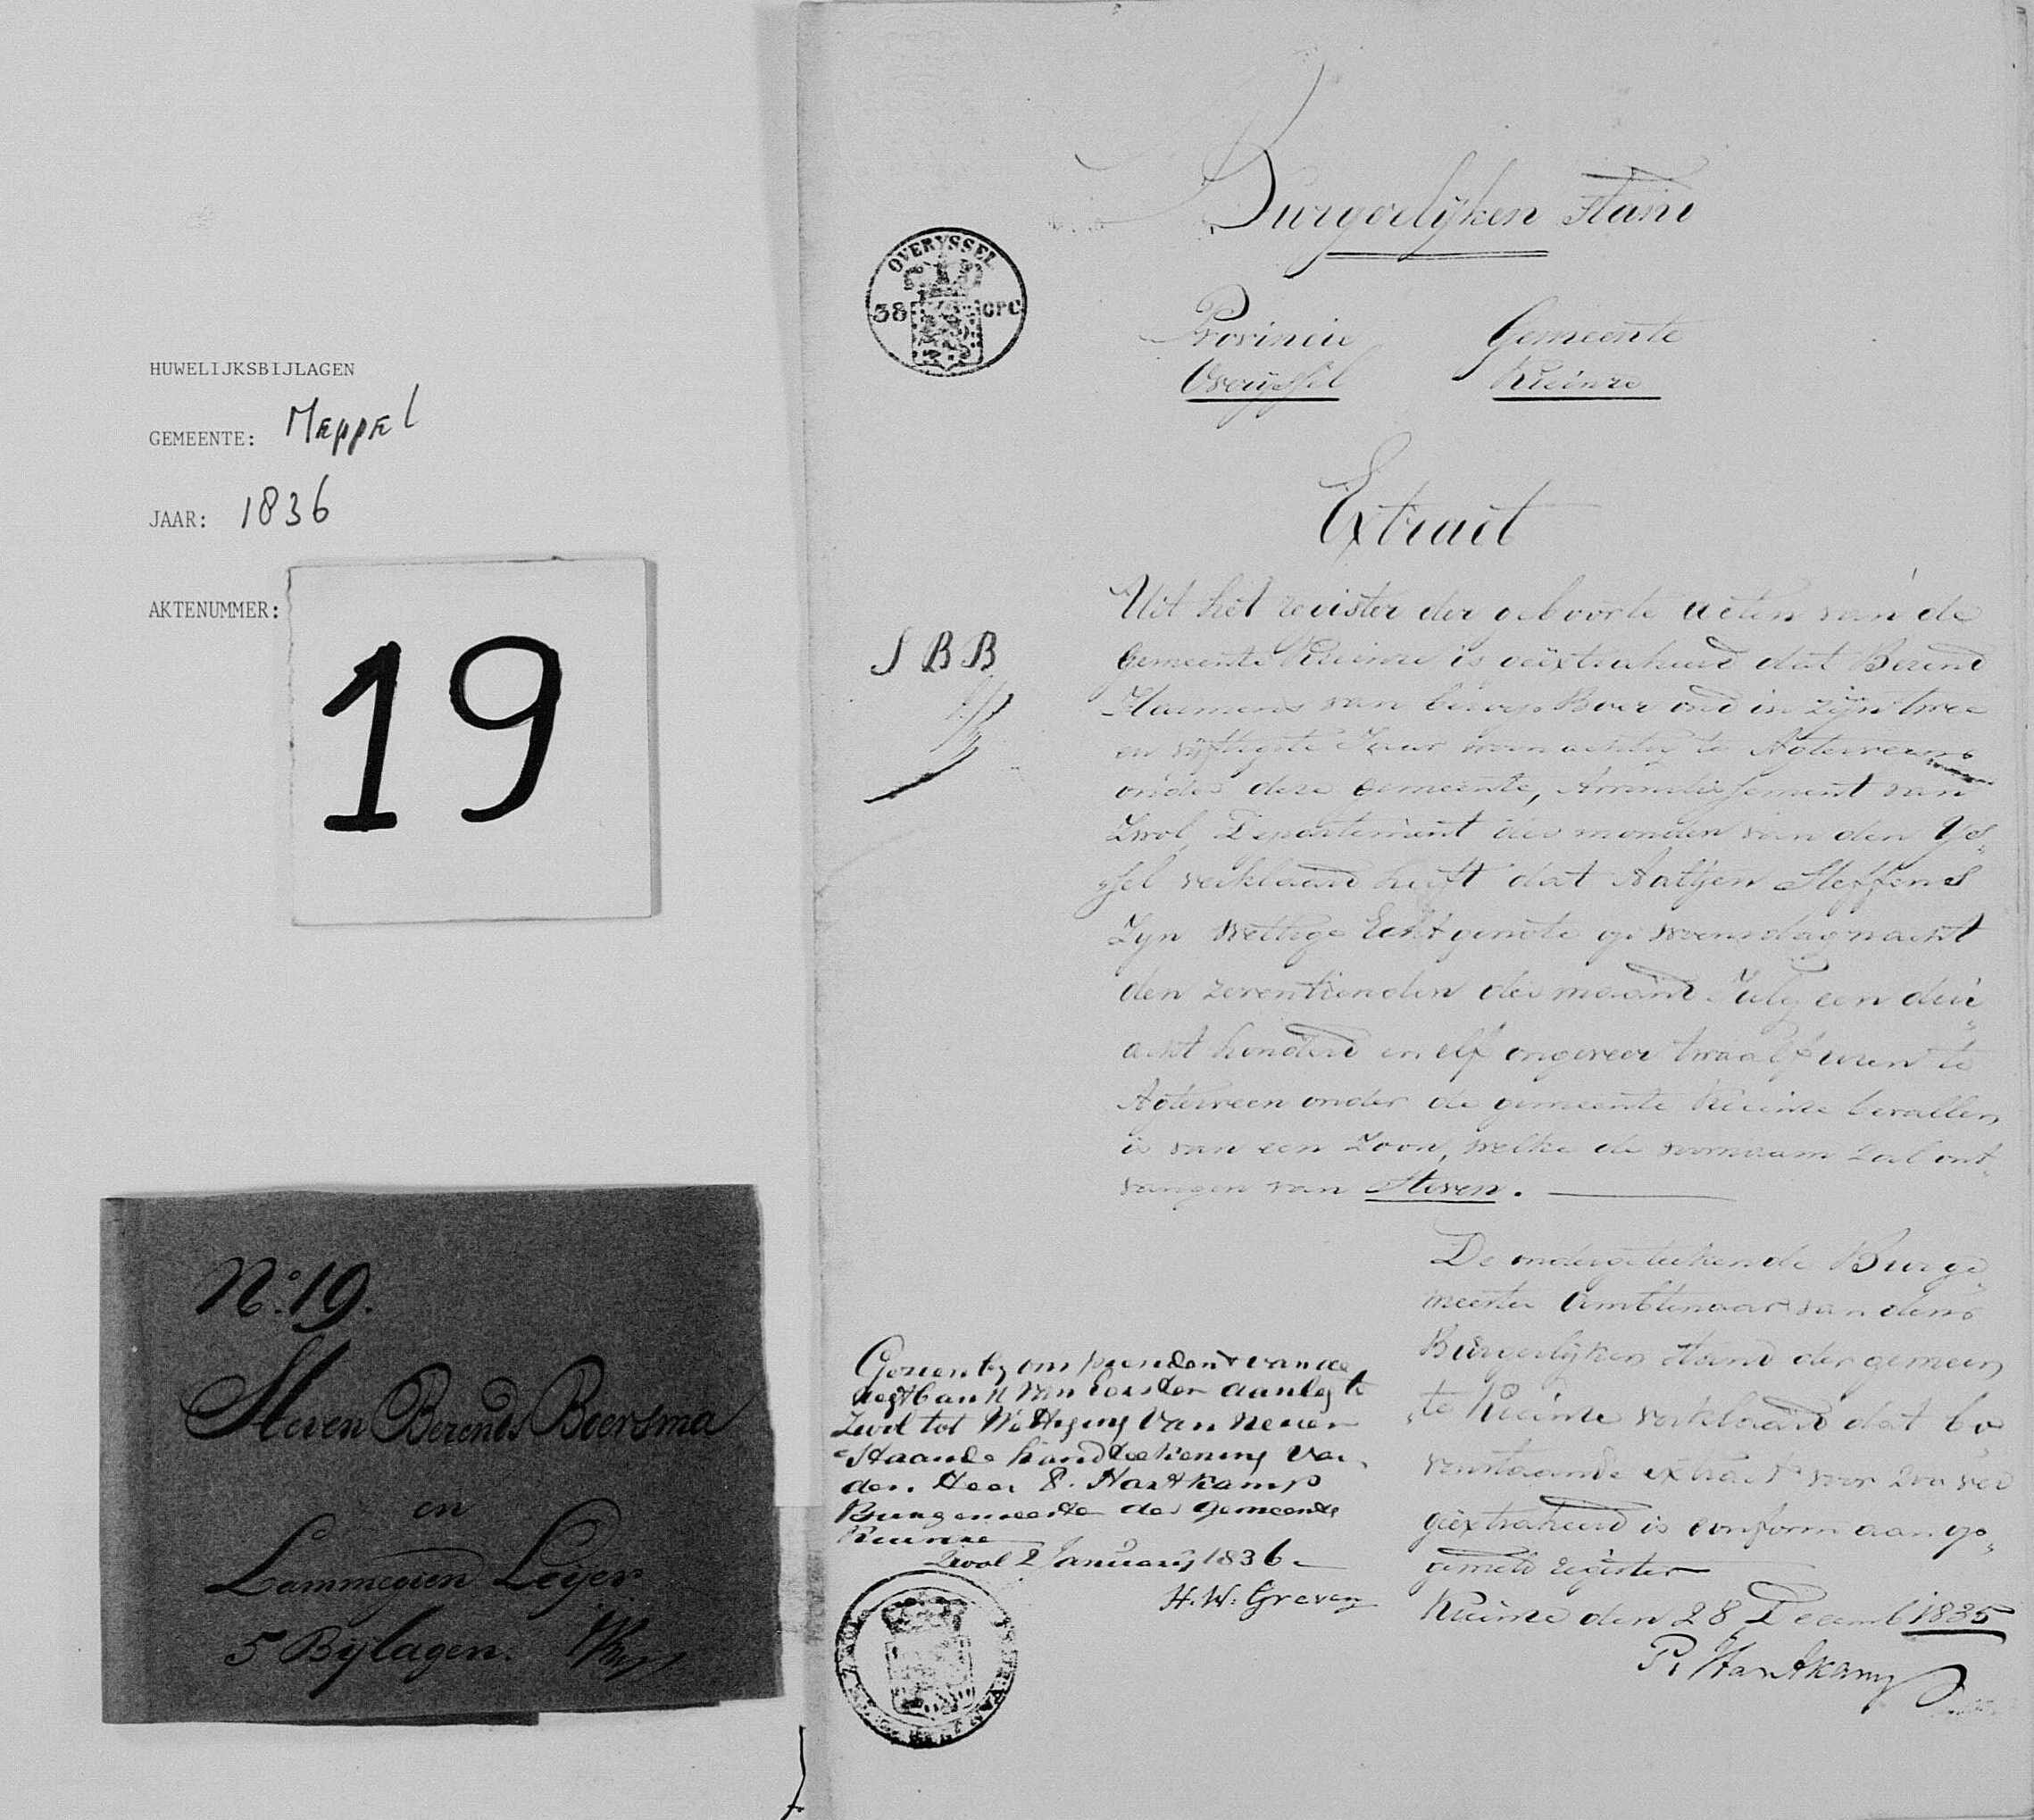 HUWELIJKSBIJLAGEN
GEMEENTE: Meppel
JAAR: 1836
AKTENUMMER:
19
No. 19.
Steven Berends Boersma
en
Lammegien Leijer
5 Bijlagen.
OVERYSSEL
38 CPC
Burgerlijken Stand
Provincie Gemeente
Overijssel Kuinre
Extract
S B B
Uit het register der geboorte acten van de
Gemeente Kuinre is geëxtraheerd dat Berend
Harmens van beroep Boer oud in zijn twee
en vijftigste Jaar woonachtig te Agterveen
onder deze Gemeente, Arrondissement van
Zwol, Departement der monden van den Ys„
„sel verklaard heeft dat Aaltjen Steffens
Zyn wettige Echtgenote op woensdag nacht
den zeventienden der maand July een dui„
acht honderd en elf ongeveer twaalf uren te
Agterveen onder de gemeente Kuinre bevallen
is van een Zoon, welke de voornaam zal ont„
vangen van Steven.
De ondergeteekende Burge„
meester Ambtenaar van den
Burgerlijken Stand der gemeen„
„te Kuinre verklaard dat bo„
venstaande extract voor zoo veel
geëxtraheerd is conform aan ge„
gemeld register
Kuinre den 28 Decemb 1835
P. Hartkamp
Gezien by ons president van de
regtbank van eersten aanleg te
Zwol tot Wettiging van neven
staande handteekening van
den Heer P. Hartkamp
Burgemeester der Gemeente
Kuinre
Zwol 2 January 1836
H. W. Greven